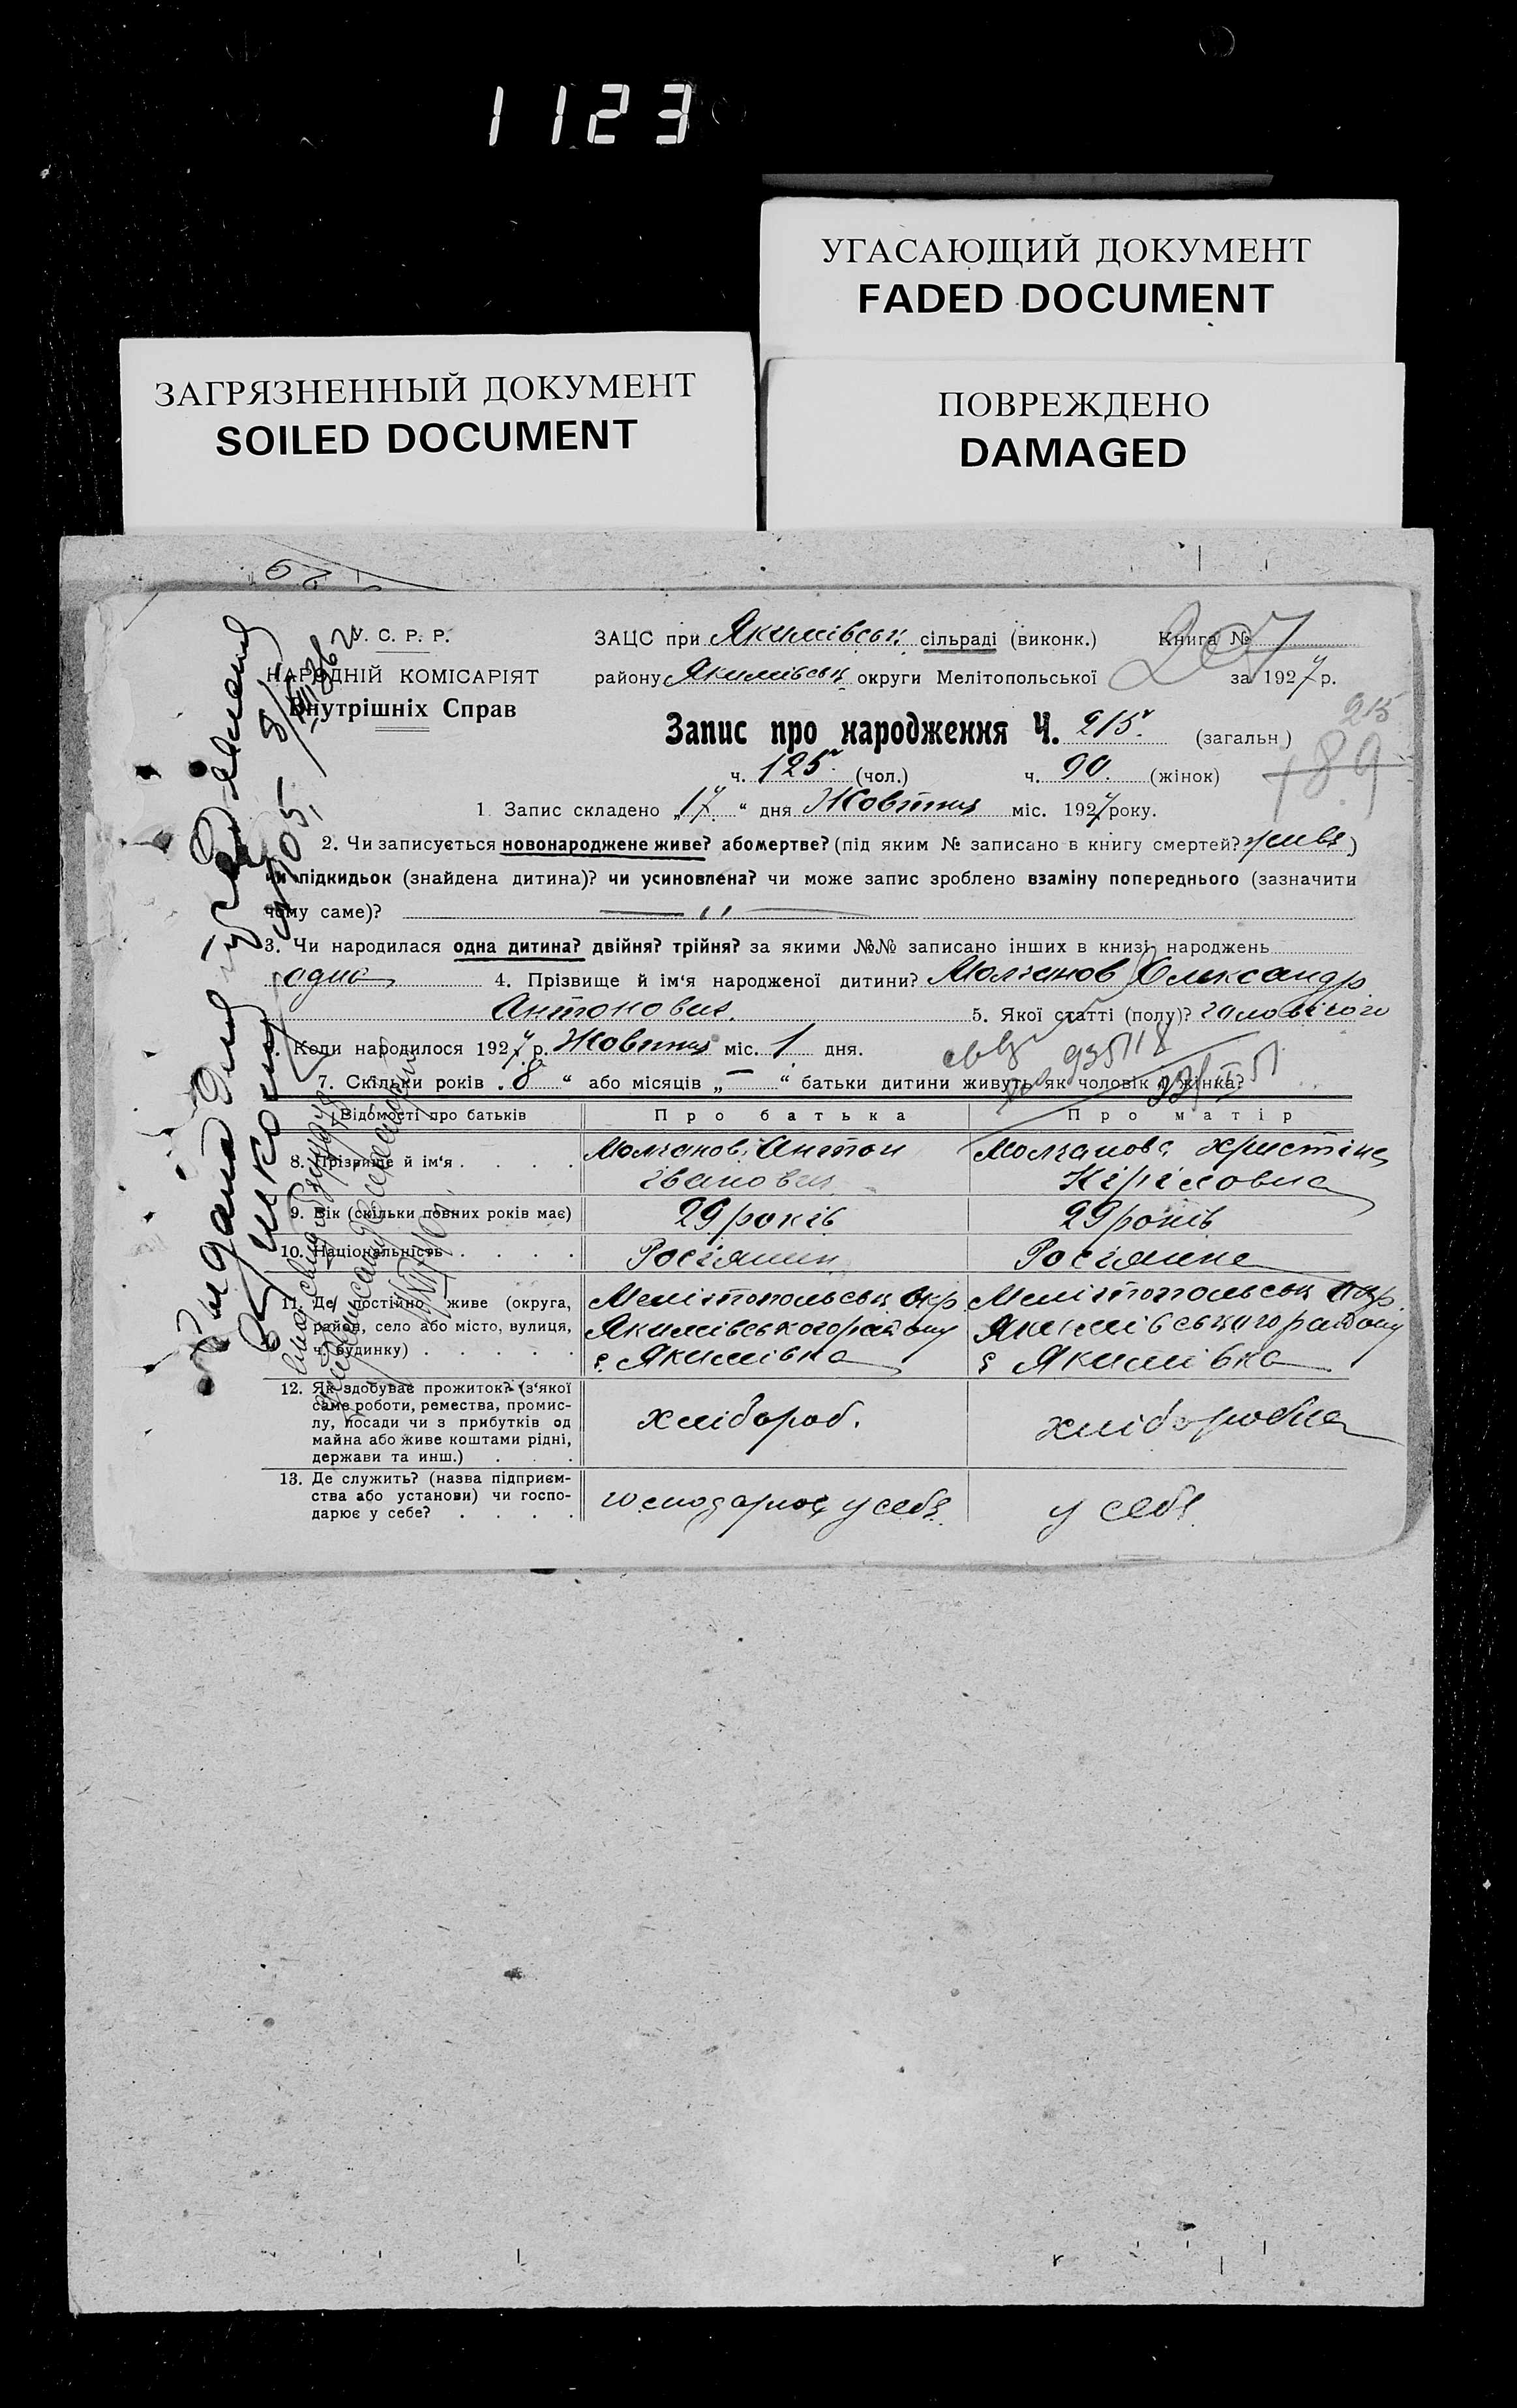 1123
УГАСАЮЩИЙ ДОКУМЕНТ
FADED DOCUMENT
ЗАГРЯЗНЕННЫЙ ДОКУМЕНТ
SOILED DOCUMENT
ПОВРЕЖДЕНО
DAMAGED
У. С. Р. Р.
НАРОДНІЙ КОМІСАРІЯТ
Внутрішніх Справ
ЗАЦС при Якимівськ. сільраді (виконк.) Книга № 207
району Якимівськ округи Мелітопольської за 1927 р.
Запис про народження Ч. 215 (загальн.)
215
189
ч. 125 (чол.) ч. 90. (жінок)
1. Запис складено „17“ дня Жовтня міс. 1927 року.
2. Чи записується новонароджене живе? або мертве? (під яким № записано в книгу смертей? живе)
чи підкидьок (знайдена дитина)? чи усиновлена? чи може запис зроблено взаміну попереднього (зазначити
чому саме)? — " —
3. Чи народилася одна дитина? двійня? трійня? за якими №№ записано інших в книзі народжень
одна 4. Прізвище й ім‘я народженої дитини? Молчанов Олександр
Антонович. 5. Якої статті (полу)? чоловічого
Коли народилося 1927 р. Жовтня міс. 1 дня.
7. Скільки років „8“ або місяців „—“ батьки дитини живуть як чоловік й жінка?
Відомості про батьків Про батька Про матір
8. Прізвище й ім‘я . . . . Молчанов Антон Іванович Молчанова Христіна Кіріловна
9. Вік (скільки повних років має) 29 років 29 років
10. Національність . . . . Росіянин Росіянка
11. Де постійно живе (округа, Мелітопольськ окр. Мелітопольськ окр.
район, село або місто, вулиця, Якимівського району Якимівського району
ч. будинку) . . . . . с. Якимівка с Якимівка
12. Як здобуває прожиток? (з‘якої
саме роботи, ремества, промис-
лу, посади чи з прибутків од хлібороб. хліборобка
майна або живе коштами рідні,
держави та инш.) . . .
13. Де служить? (назва підприєм-
ства або установи) чи госпо- господарює у себе. у себе.
дарює у себе? . . . .